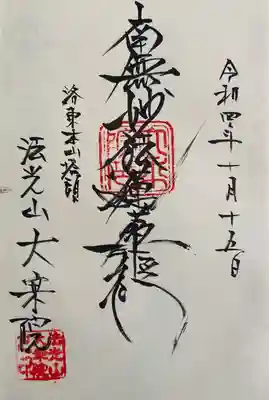 令和四年十月十五日
南無妙法蓮華経
洛東本山塔頭
法光山大乗院